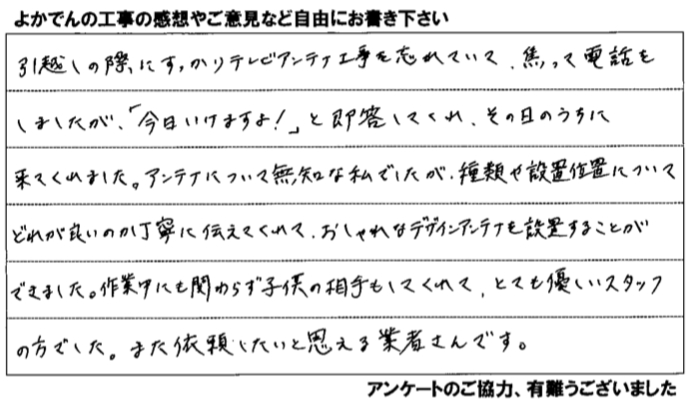 よかでんの工事の感想やご意見など自由にお書き下さい
引越しの際にすっかりテレビアンテナ工事を忘れていて、焦って電話を
しましたが、「今日いけますよ!」と即答してくれ、その日のうちに
来てくれました。アンテナについて無知な私でしたが、種類や設置位置について
どれが良いのか丁寧に伝えてくれて、おしゃれなデザインアンテナを設置することが
できました。作業中にも関わらず子供の相手もしてくれて、とても優しいスタッフ
の方でした。また依頼したいと思える業者さんです。
アンケートのご協力、有難うございました